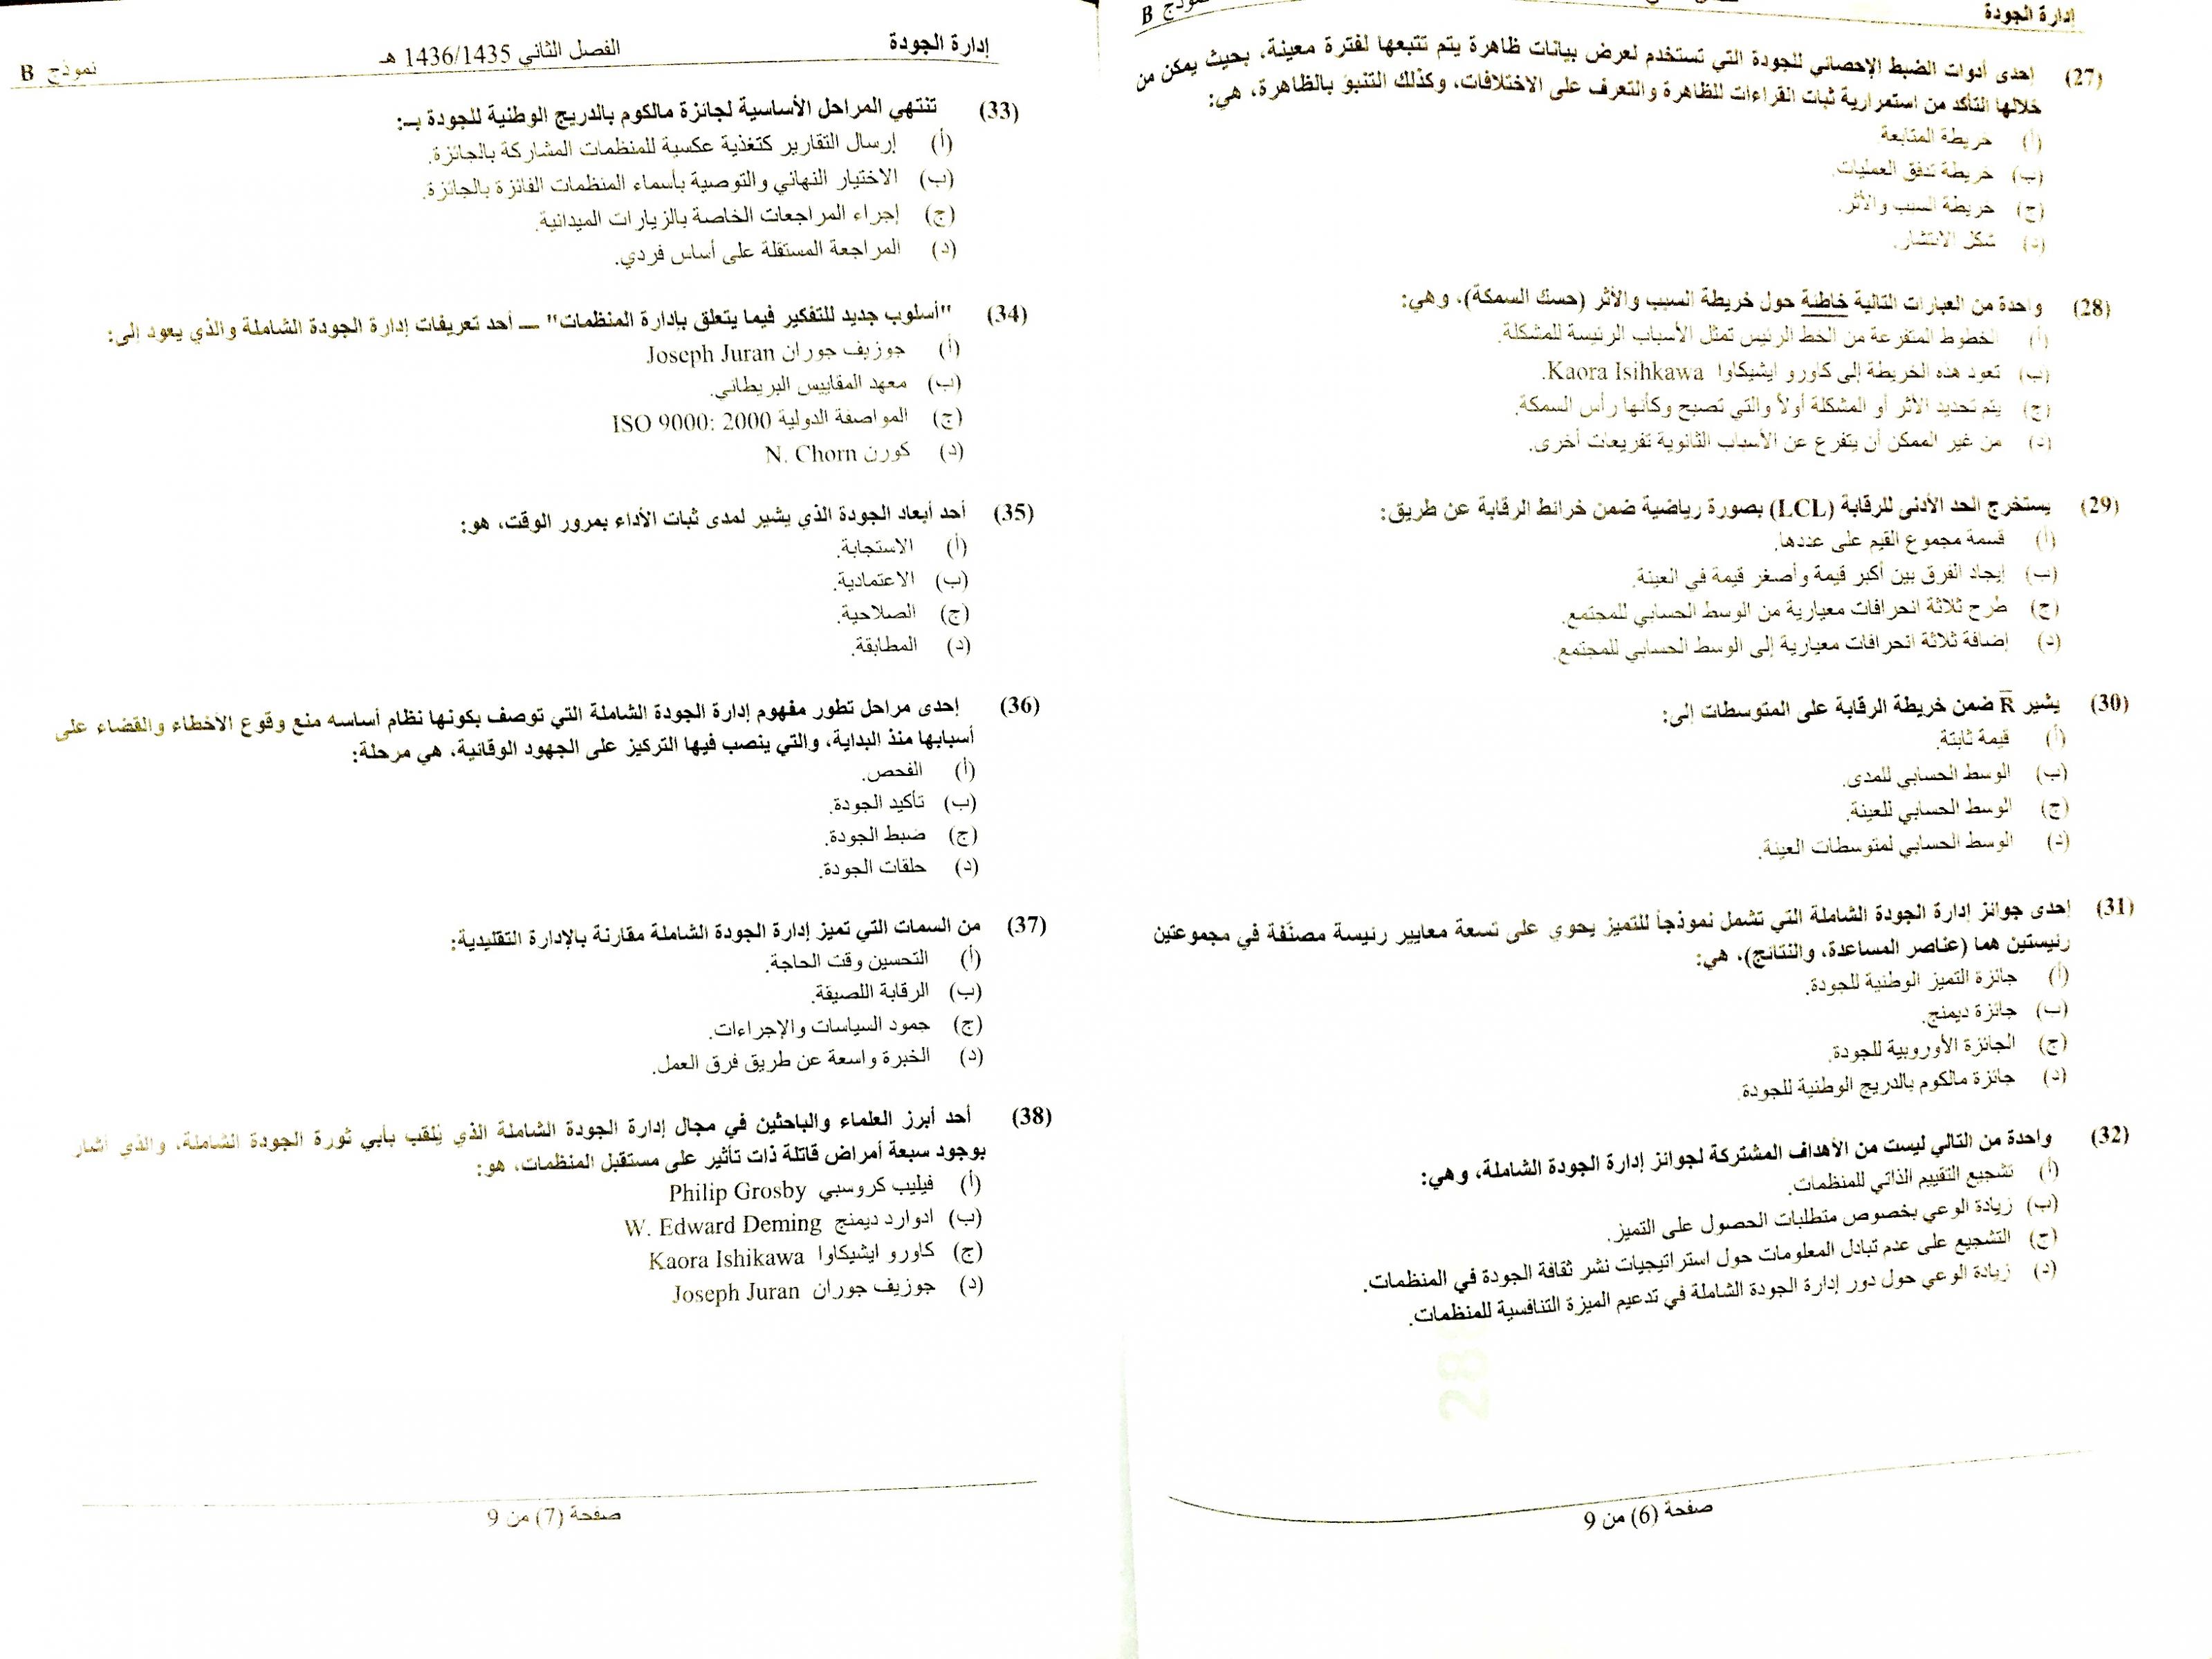 إدارة الجودة
نموذج B
(27) إحدى أدوات الضبط الإحصائي للجودة التي تستخدم لعرض بيانات ظاهرة يتم تتبعها لفترة معينة، بحيث يمكن من
خلالها التأكد من استمرارية ثبات القراءات للظاهرة والتعرف على الاختلافات، وكذلك التنبؤ بالظاهرة، هي:
(أ) خريطة المتابعة
(ب) خريطة تدفق العمليات.
(ج) خريطة السبب والأثر.
(د) شكل الانتشار.
(28) واحدة من العبارات التالية خاطئة حول خريطة السبب والأثر (حسك السمكة)، وهي:
(أ) الخطوط المتفرعة من الخط الرئيس تمثل الأسباب الرئيسة للمشكلة.
(ب) تعود هذه الخريطة إلى كاورو ايشيكاوا Kaora Isihkawa.
(ج) يتم تحديد الأثر أو المشكلة أولاً والتي تصبح وكأنها رأس السمكة.
(د) من غير الممكن أن يتفرع عن الأسباب الثانوية تفريعات أخرى.
(29) يستخرج الحد الأدنى للرقابة (LCL) بصورة رياضية ضمن خرائط الرقابة عن طريق:
(أ) قسمة مجموع القيم على عددها.
(ب) إيجاد الفرق بين أكبر قيمة وأصغر قيمة في العينة.
(ج) طرح ثلاثة انحرافات معيارية من الوسط الحسابي للمجتمع.
(د) إضافة ثلاثة انحرافات معيارية إلى الوسط الحسابي للمجتمع.
(30) يشير R̅ ضمن خريطة الرقابة على المتوسطات إلى:
(أ) قيمة ثابتة.
(ب) الوسط الحسابي للمدى.
(ج) الوسط الحسابي للعينة.
(د) الوسط الحسابي لمتوسطات العينة.
(31) إحدى جوائز إدارة الجودة الشاملة التي تشمل نموذجاً للتميز يحوي على تسعة معايير رئيسة مصنّفة في مجموعتين
رئيستين هما (عناصر المساعدة، والنتائج)، هي:
(أ) جائزة التميز الوطنية للجودة.
(ب) جائزة ديمنج.
(ج) الجائزة الأوروبية للجودة.
(د) جائزة مالكوم بالدريج الوطنية للجودة.
(32) واحدة من التالي ليست من الأهداف المشتركة لجوائز إدارة الجودة الشاملة، وهي:
(أ) تشجيع التقييم الذاتي للمنظمات.
(ب) زيادة الوعي بخصوص متطلبات الحصول على التميز.
(ج) التشجيع على عدم تبادل المعلومات حول استراتيجيات نشر ثقافة الجودة في المنظمات.
(د) زيادة الوعي حول دور إدارة الجودة الشاملة في تدعيم الميزة التنافسية للمنظمات.
صفحة (6) من 9
إدارة الجودة
الفصل الثاني 1436/1435 هـ
نموذج B
(33) تنتهي المراحل الأساسية لجائزة مالكوم بالدريج الوطنية للجودة بـ:
(أ) إرسال التقارير كتغذية عكسية للمنظمات المشاركة بالجائزة.
(ب) الاختيار النهائي والتوصية بأسماء المنظمات الفائزة بالجائزة.
(ج) إجراء المراجعات الخاصة بالزيارات الميدانية.
(د) المراجعة المستقلة على أساس فردي.
(34) "أسلوب جديد للتفكير فيما يتعلق بإدارة المنظمات" – أحد تعريفات إدارة الجودة الشاملة والذي يعود إلى:
(أ) جوزيف جوران Joseph Juran
(ب) معهد المقاييس البريطاني.
(ج) المواصفة الدولية ISO 9000: 2000
(د) كورن N. Chorn
(35) أحد أبعاد الجودة الذي يشير لمدى ثبات الأداء بمرور الوقت، هو:
(أ) الاستجابة.
(ب) الاعتمادية.
(ج) الصلاحية.
(د) المطابقة.
(36) إحدى مراحل تطور مفهوم إدارة الجودة الشاملة التي توصف بكونها نظام أساسه منع وقوع الأخطاء والقضاء على
أسبابها منذ البداية، والتي ينصب فيها التركيز على الجهود الوقائية، هي مرحلة:
(أ) الفحص.
(ب) تأكيد الجودة.
(ج) ضبط الجودة.
(د) حلقات الجودة.
(37) من السمات التي تميز إدارة الجودة الشاملة مقارنة بالإدارة التقليدية:
(أ) التحسين وقت الحاجة.
(ب) الرقابة اللصيقة.
(ج) جمود السياسات والإجراءات.
(د) الخبرة واسعة عن طريق فرق العمل.
(38) أحد أبرز العلماء والباحثين في مجال إدارة الجودة الشاملة الذي يُلقب بأبي ثورة الجودة الشاملة، والذي أشار
بوجود سبعة أمراض قاتلة ذات تأثير على مستقبل المنظمات، هو:
(أ) فيليب كروسبي Philip Grosby
(ب) ادوارد ديمنج W. Edward Deming
(ج) كاورو ايشيكاوا Kaora Ishikawa
(د) جوزيف جوران Joseph Juran
صفحة (7) من 9